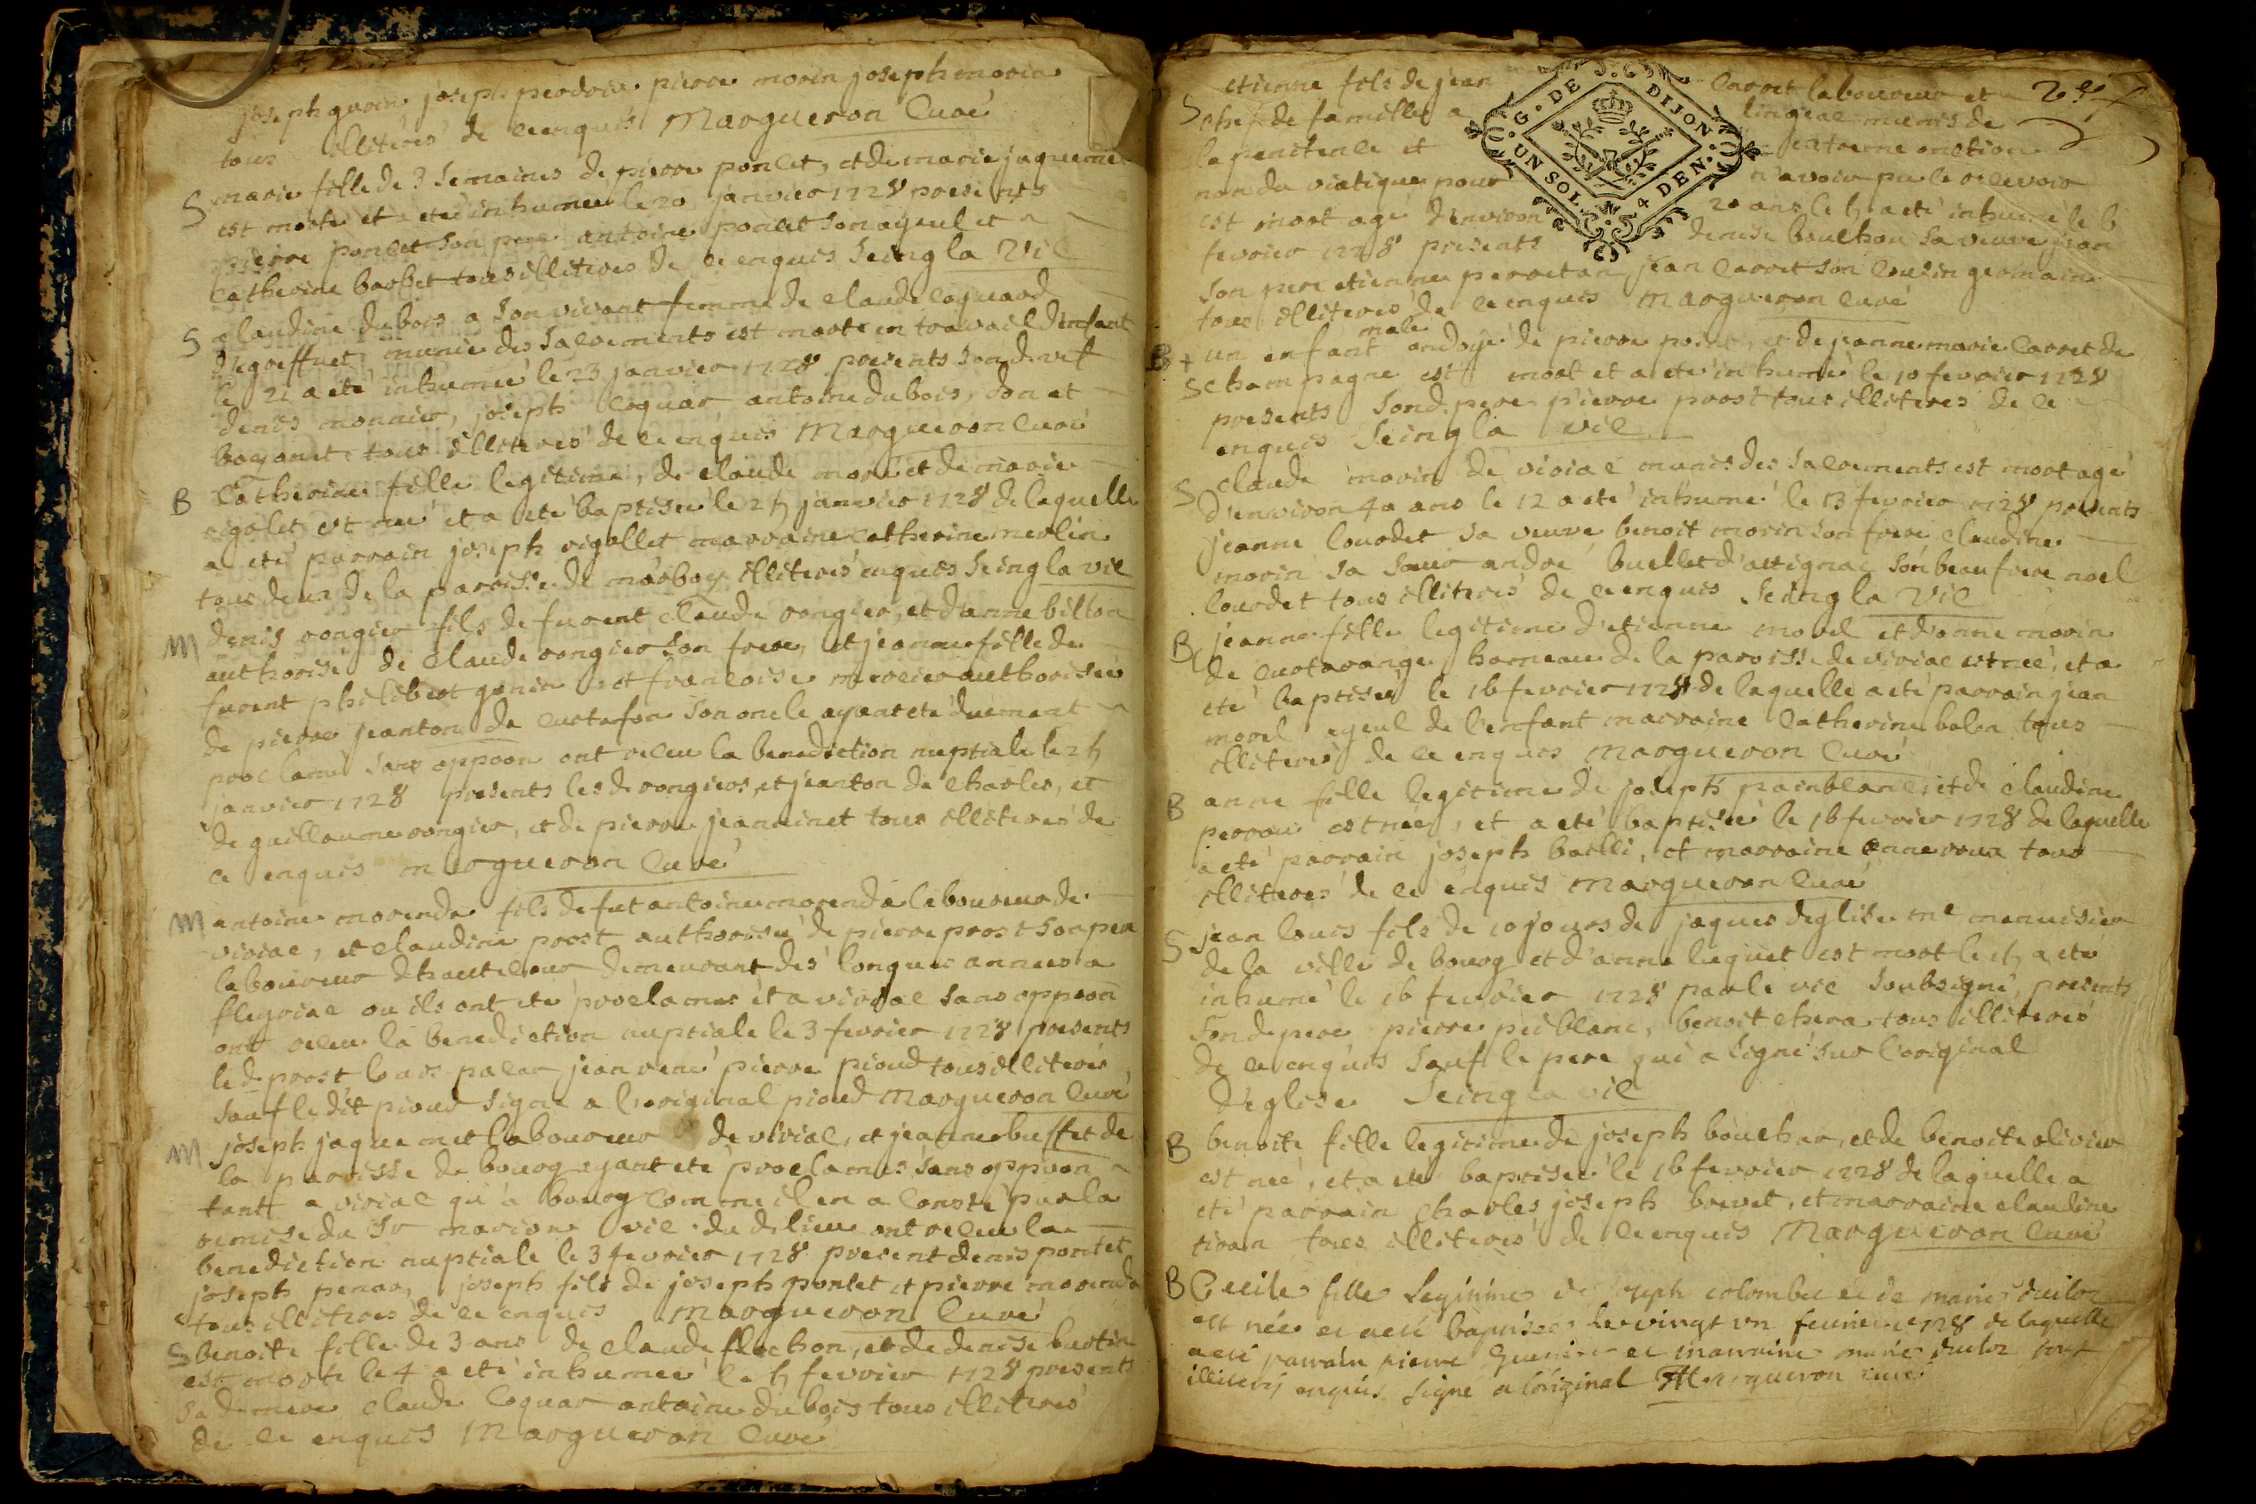 joseph perdrix pierre morin joseph morin
tous illiterés de ce enquis Margueron Curé
S marie fille de 3 semaines de pierre poncet, et de marie jaqueme
est morte et a eté inhumeé le 20 janvier 1728 presents
pierre poncet son pere antoine poncet son ayeul et
catherine barbet tous illiterés de ce enquis Seing la Vic
S claudine dubois a son vivant femme de claude coquard
munie des sacrements est morte en travail d'enfant
le 21 a eté inhumeé le 23 janvier 1728 presents son d. vef
denis monnier, joseph coquar antoine dubois, Don et
tous illiterés de ce enquis Margueron Curé
B Catherine fille legitime, de claude moré et de marie
rigolet est neé et a eté baptiseé le 25 janvier 1728 de laquelle
a eté parrain joseph rigollet marraine catherine merlin
tous deux de la parroisse de marboz illiterés enquis Seing la vic
M denis rongier fils de furent claude rongier, et d'anne billon
authorisé de claude rongier son frere, et jeanne fille de
furent philibert et francoise mercier authoriseé
de pierre jeanton de son oncle ayant eté duement
proclamé sans oppoon ont receu la benediction nuptiale le 25
janvier 1728 presents les d. rongiers, et jeanton de charles, et
de guillaume rongier, et de pierre jeanninet tous illiterés de
ce enquis margueron Curé
M antoine morenda fils de fut antoine morenda laboureur de
viriac, et claudine prost authoriseé de pierre prost son pere
laboureur d'hautecour demeurant dés longues annees a
fleyriac ou ils ont eté proclamés et a viriac sans oppoon
ont receu la benediction nuptiale le 3 fevrier 1728 presents
led. prost louis pacar jean rené pierre pioud tous illiterés
sauf le dit pioud signé a l'original pioud Margueron Curé
M joseph jaquemet laboureur de viriac, et jeanne buffet de
la parroisse de bourg ayant eté proclamés sans oppoon
tant a viriac qu'a bourg comme il en a consté par la
remise du Sr marion vic. du d. lieu ont receu la
benediction nuptiale le 3 fevrier 1728 present denis pontet
joseph penar, joseph fils de joseph pontet et pierre morenda
tous illiterés de ce enquis Margueron Curé
S benoite fille de 3 ans de claude flechon, et de denise
est morte le 4 a eté inhumeé le 5 fevrier 1728 presents
sa d. mere claude coquar antoine dubois tous illiterés
de ce enquis Margueron Curé
2e
S etienne fils de jean carret laboureur et
chef de famille a muni de
la penitence et extreme onction
non du viatique pour n'avoir pu le recevoir
est mort agé d'environ 20 ans le 5 a eté inhumé le 6
fevrier 1728 presents denise bouchou sa veuve jean
son pere etienne perretan, jean carret son cousin germain
tous illiterés de ce enquis Margueron Curé
G. DE DIJON
UN SOL. 4 DEN.
B + S un enfant male ondoyé de pierre prost, et de jeanne marie carret de
champagne est mort et a eté inhumé le 10 fevrier 1728
presents son d. pere pierre prost tous illiterés de ce
enquis Seing la vic
S claude morin de viriac munis des sacrements est mort agé
d'environ 40 ans le 12 a eté inhumé le 13 fevrier 1728 presents
jeanne lourdet sa veuve benoit morin son frere claudine
morin sa soeur andré buellet d'attignac son beau frere noel
lourdet tous illiterés de ce enquis Seing la Vic
B jeanne fille legitime d'etienne morel et d'anne morin
de hameau de la paroisse de viriac est neé, et a
eté baptiseé le 16 fevrier 1728 de laquelle a eté parrain jean
morel ayeul de l'enfant marraine Catherine tous
illiterés de ce enquis Margueron Curé
B anne fille legitime de joseph painblanc, et de claudine
perrou est neé, et a eté baptiseé le 16 fevrier 1728 de laquelle
a eté parrain joseph bailli, et marraine anne roux tous
illiterés de ce enquis Margueron Curé
S jean louis fils de 10 jours de jaques deglise me menuisier
de la ville de bourg et d'anne luquet est mort le 15 a eté
inhumé le 16 fevrier 1728 par le vic soubsigné, presents
son d. pere pierre piéblanc, benoit chera tous illiterés
de ce enquis sauf le pere qui a signé sur l'original
Deglise Seing la vic
B benoite fille legitime de joseph bouchar, et de benoite olivier
est neé, et a eté baptiseé le 16 fevrier 1728 de laquelle a
eté parrain charles joseph brevet, et marraine claudine
tiran tous illiterés de ce enquis Margueron Curé
B Cecile fille Legitime de joseph colombet et de marie
est née et a eté baptisée le vingt un fevrier 1728 de laquelle
a eté parrain pierre et marraine marie tous
illiterés enquis signé a l'original Margueron curé